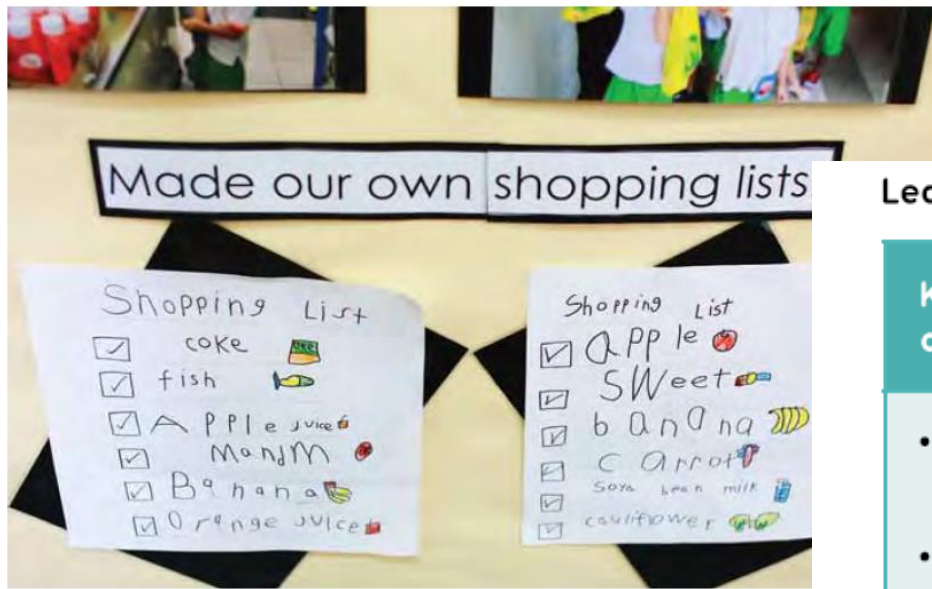 Made our own shopping lists
Shopping List
coke
fish
Apple juice
MandM
Banana
Orange juice
Shopping List
apple
SWeet
banana
carrot
Soya bean milk
cauliflower